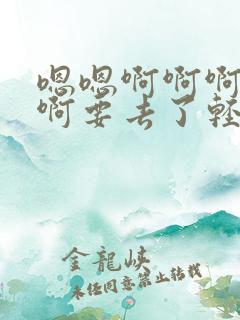 嗯嗯啊啊啊
啊要去了轻
金龍峡
未经同意禁止转载